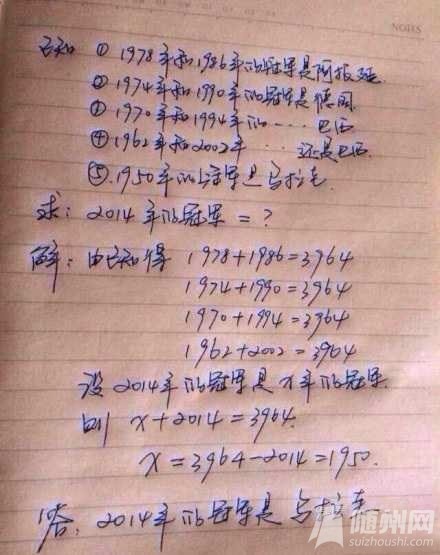 NOTES
已知 ① 1978年和1986年的冠军是阿根廷
② 1974年和1990年的冠军是德国
③ 1970年和1994年的……巴西
④ 1962年和2002年…还是巴西
⑤ 1950年的冠军是乌拉圭
求: 2014年的冠军=?
解: 由已知得 1978+1986=3964
1974+1990=3964
1970+1994=3964
1962+2002=3964
设2014年的冠军是x年的冠军
则 x+2014=3964.
x=3964-2014=1950.
答: 2014年的冠军是乌拉圭
随州网
suizhoushi.com